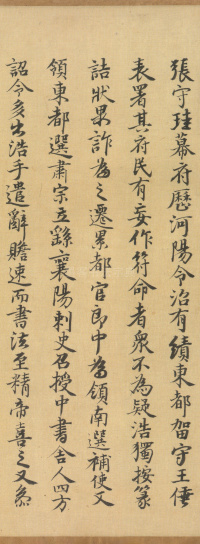 張守珪幕府歷河陽令治有績東都留守王倕
表署其府民有妄作符命者衆不為疑浩獨按篆
詰狀果詐為之遷累都官郎中為領南選補使又
領東都選肅宗立繇襄陽刺史召授中書舍人四方
詔令多出浩手遣辭贍速而書法至精帝喜之又兼